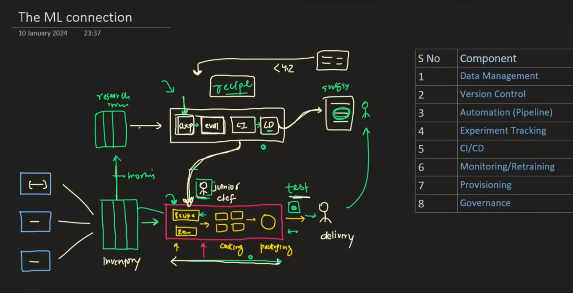 The ML connection
10 January 2024 23:37
<42
recipe
swiggy
research
exp
eval
CI
CD
junior
chef
test
Recipe
raw
cooking
packaging
delivery
inventory
S No Component
1 Data Management
2 Version Control
3 Automation (Pipeline)
4 Experiment Tracking
5 CI/CD
6 Monitoring/Retraining
7 Provisioning
8 Governance